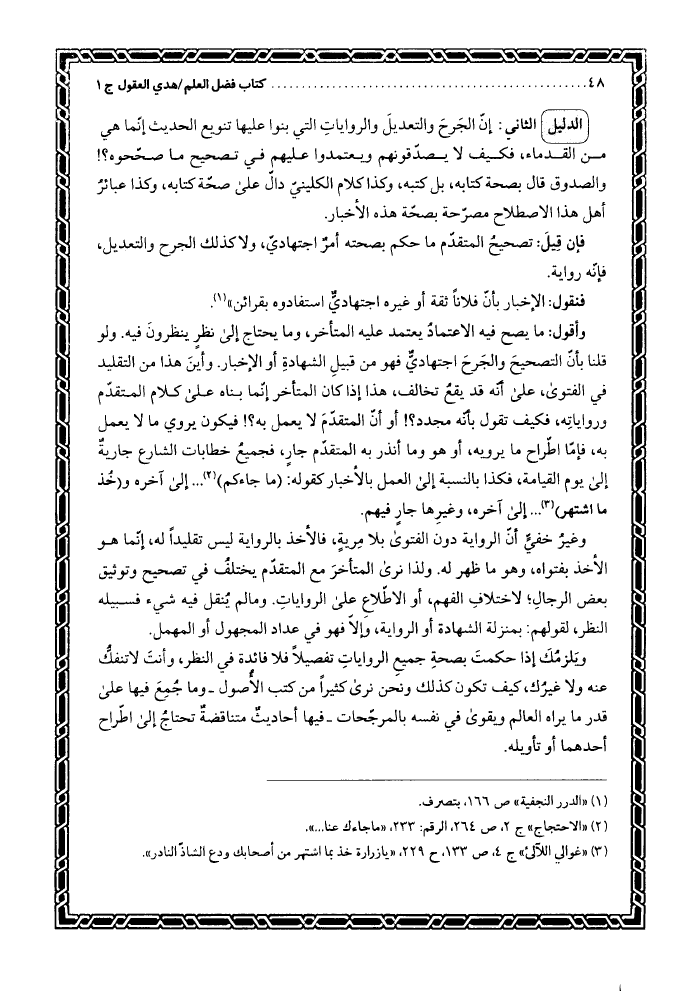 ٤٨ ................................................ كتاب فضل العلم/هدي العقول ج ١
الدليل الثاني: إنّ الجَرحَ والتعديلَ والرواياتِ التي بنوا عليها تنويع الحديث إنّما هي
من القدماء، فكيف لا يصدّقونهم ويعتمدوا عليهم في تصحيح ما صحّحوه؟!
والصدوق قال بصحة كتابه، بل كتبه، وكذا كلام الكلينيّ دالّ علىٰ صحّة كتابه، وكذا عبائرُ
أهل هذا الاصطلاح مصرّحة بصحّة هذه الأخبار.
فإن قِيلَ: تصحيحُ المتقدّم ما حكم بصحته أمرٌ اجتهاديّ، ولا كذلك الجرح والتعديل،
فإنّه رواية.
فنقول: الإخبار بأنّ فلاناً ثقة أو غيره اجتهاديٌّ استفادوه بقرائن»(١).
وأقول: ما يصح فيه الاعتمادُ يعتمد عليه المتأخر، وما يحتاج إلىٰ نظرٍ ينظرونَ فيه. ولو
قلنا بأنّ التصحيحَ والجَرحَ اجتهاديٌّ فهو من قبيلِ الشهادةِ أو الإخبار. وأينَ هذا من التقليد
في الفتوىٰ، علىٰ أنّه قد يقعُ تخالف، هذا إذا كان المتأخر إنّما بناه علىٰ كلام المتقدّم
ورواياتِه، فكيف تقول بأنّه مجدد؟! أو أنّ المتقدّمَ لا يعمل به؟! فيكون يروي ما لا يعمل
به، فإمّا اطّراح ما يرويه، أو هو وما أنذر به المتقدّم جارٍ، فجميعُ خطابات الشارع جاريةٌ
إلىٰ يوم القيامة، فكذا بالنسبة إلىٰ العمل بالأخبار كقوله: (ما جاءكم)(٢)... إلىٰ آخره و(خُذ
ما اشتهر)(٣)... إلىٰ آخره، وغيرِها جارٍ فيهم.
وغيرُ خفيٍّ أنّ الرواية دون الفتوىٰ بلا مِريةٍ، فالأخذ بالرواية ليس تقليداً له، إنّما هو
الأخذ بفتواه، وهو ما ظهر له. ولذا نرىٰ المتأخرَ مع المتقدّم يختلفُ في تصحيح وتوثيق
بعض الرجالِ؛ لاختلافِ الفهم، أو الاطّلاعِ علىٰ الرواياتِ. ومالم يُنقل فيه شيء فسبيله
النظر، لقولهم: بمنزلة الشهادة أو الرواية، وإلّا فهو في عداد المجهول أو المهمل.
ويَلزمُكَ إذا حكمتَ بصحةِ جميعِ الرواياتِ تفصيلاً فلا فائدة في النظر، وأنتَ لاتنفكُّ
عنه ولا غيرُك، كيف تكون كذلك ونحن نرىٰ كثيراً من كتب الأُصول ـ وما جُمِعَ فيها علىٰ
قدر ما يراه العالم ويقوىٰ في نفسه بالمرجّحات ـ فيها أحاديثُ متناقضةٌ تحتاجُ إلىٰ اطّراح
أحدهما أو تأويله.
(١) «الدرر النجفية» ص ١٦٦، بتصرف.
(٢) «الاحتجاج» ج ٢، ص ٢٦٤، الرقم: ٢٣٣، «ماجاءك عنا...».
(٣) «غوالي اللآلئ» ج ٤، ص ١٣٣، ح ٢٢٩، «يازرارة خذ بما اشتهر من أصحابك ودع الشاذّ النادر».